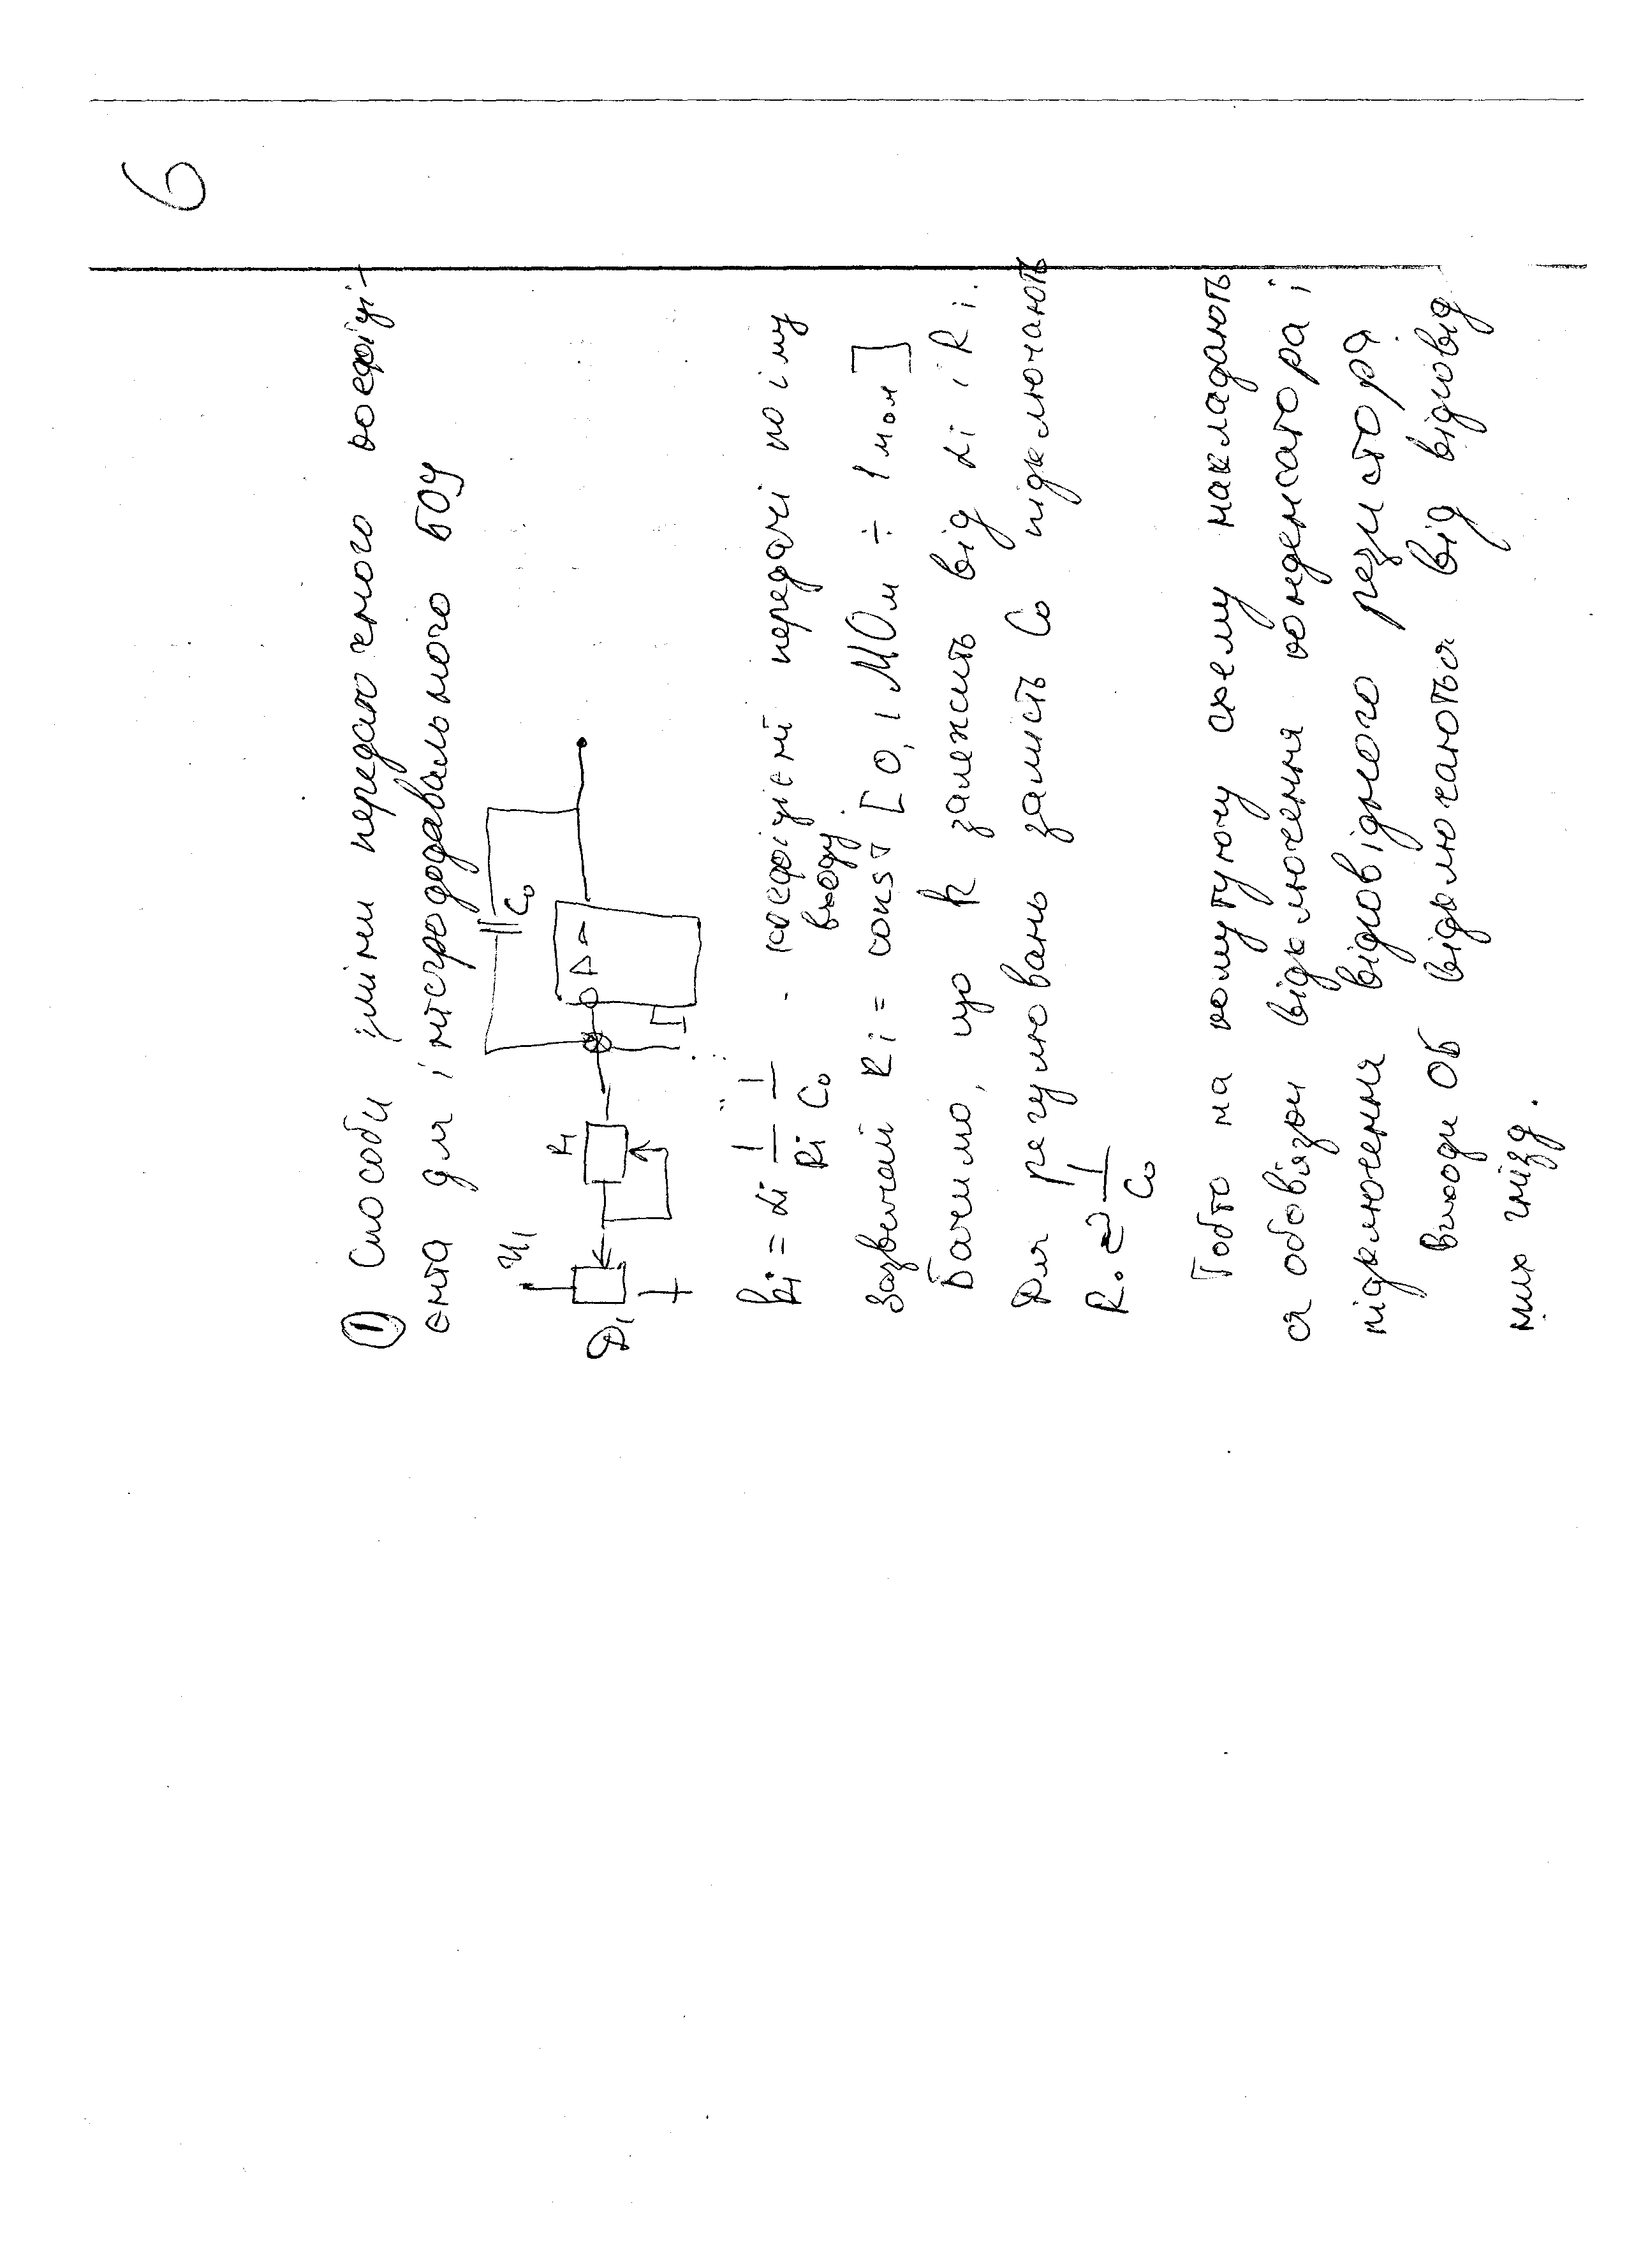 6
① Способи зміни передаточного коефіці-
єнта для інтегрододавального БОУ
U1
R1
C0
D1
ki = αi 1/Ri 1/C0 - коефіцієнт передачі по i му
входу
Зазвичай Ri = const [0,1 МОм ÷ 1 мом]
Бачимо, що k залежить від αi i Ri.
Для регулювань замість C0 підключають
R0 ≈ 1/C0
Тобто на комутуючу схему накладають
ся обовязки відключення конденсатора і
підключення відповідного резистора
Виходи ОБ відключаються від відповід
них гнізд.